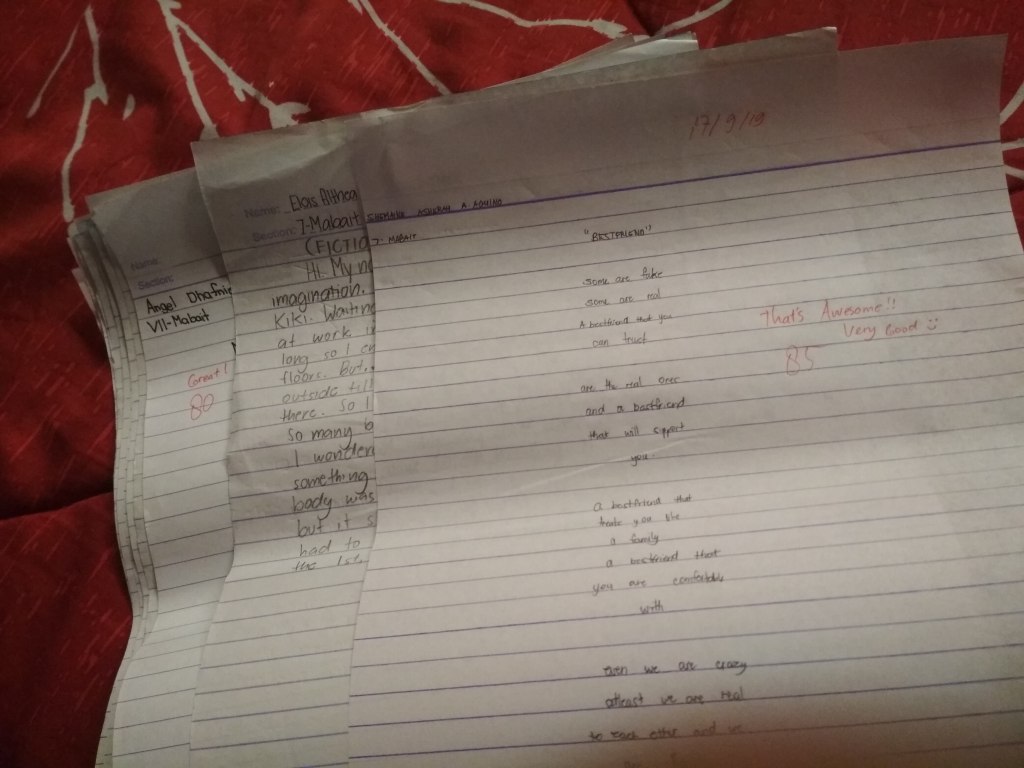 Name:
Section:
Angel
VII-Mabait
Great!
80
Name: Elois Althea
Section: 7-Mabait
(FICTIO
Hi. My n
imagination.
Kiki. Waitin
at work
long so I
floors. But,
outside
there. So I
so many
I wonder
something
body was
but it s
had to
the
17/9/19
A. AQUINO
7- MABAIT
"BESTFRIEND"
some are fake
some are real
A bestfriend that you
can trust
are the real ones
and a bestfriend
that will support
you
a bestfriend that
you like
a family
a bestfriend that
you are comfortable
with
Even we are crazy
atleast we are real
to each other and we
That's Awesome!!
Very Good
85